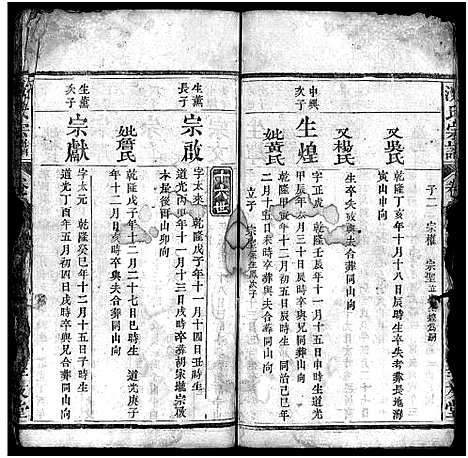 氏宗譜
又吳氏
子二 宗權 宗聖
乾隆丁亥年十月十八日辰時生卒失考葬長地灣
寅山申向
又楊氏
生卒失攷與夫合葬同山向
中興
次子
生煌
字正成 乾隆壬辰年十一月十五日申時生道光
甲辰年八月三十日辰時卒與兄合葬同山向
妣黃氏
乾隆甲寅年十二月初五日辰時生 同治己年
二月十五日亥時卒與夫合葬同山向
立子
十六世
生薰
長子
宗啟
字太來 乾隆戊子年十一月十四日丑時生
道光丙申年十一月十三日戌時卒葬胡宋壠宗啟
本最後酉山卯向
生薰
次子
宗獻
字太元 乾隆癸巳年十二月十五日子時生
道光丁酉年五月初四日戌時卒與兄合葬同山向
妣詹氏
年十二月二十七日巳時生 道光庚子
年十二月初三日亥時卒與夫合葬同山向
宗譜